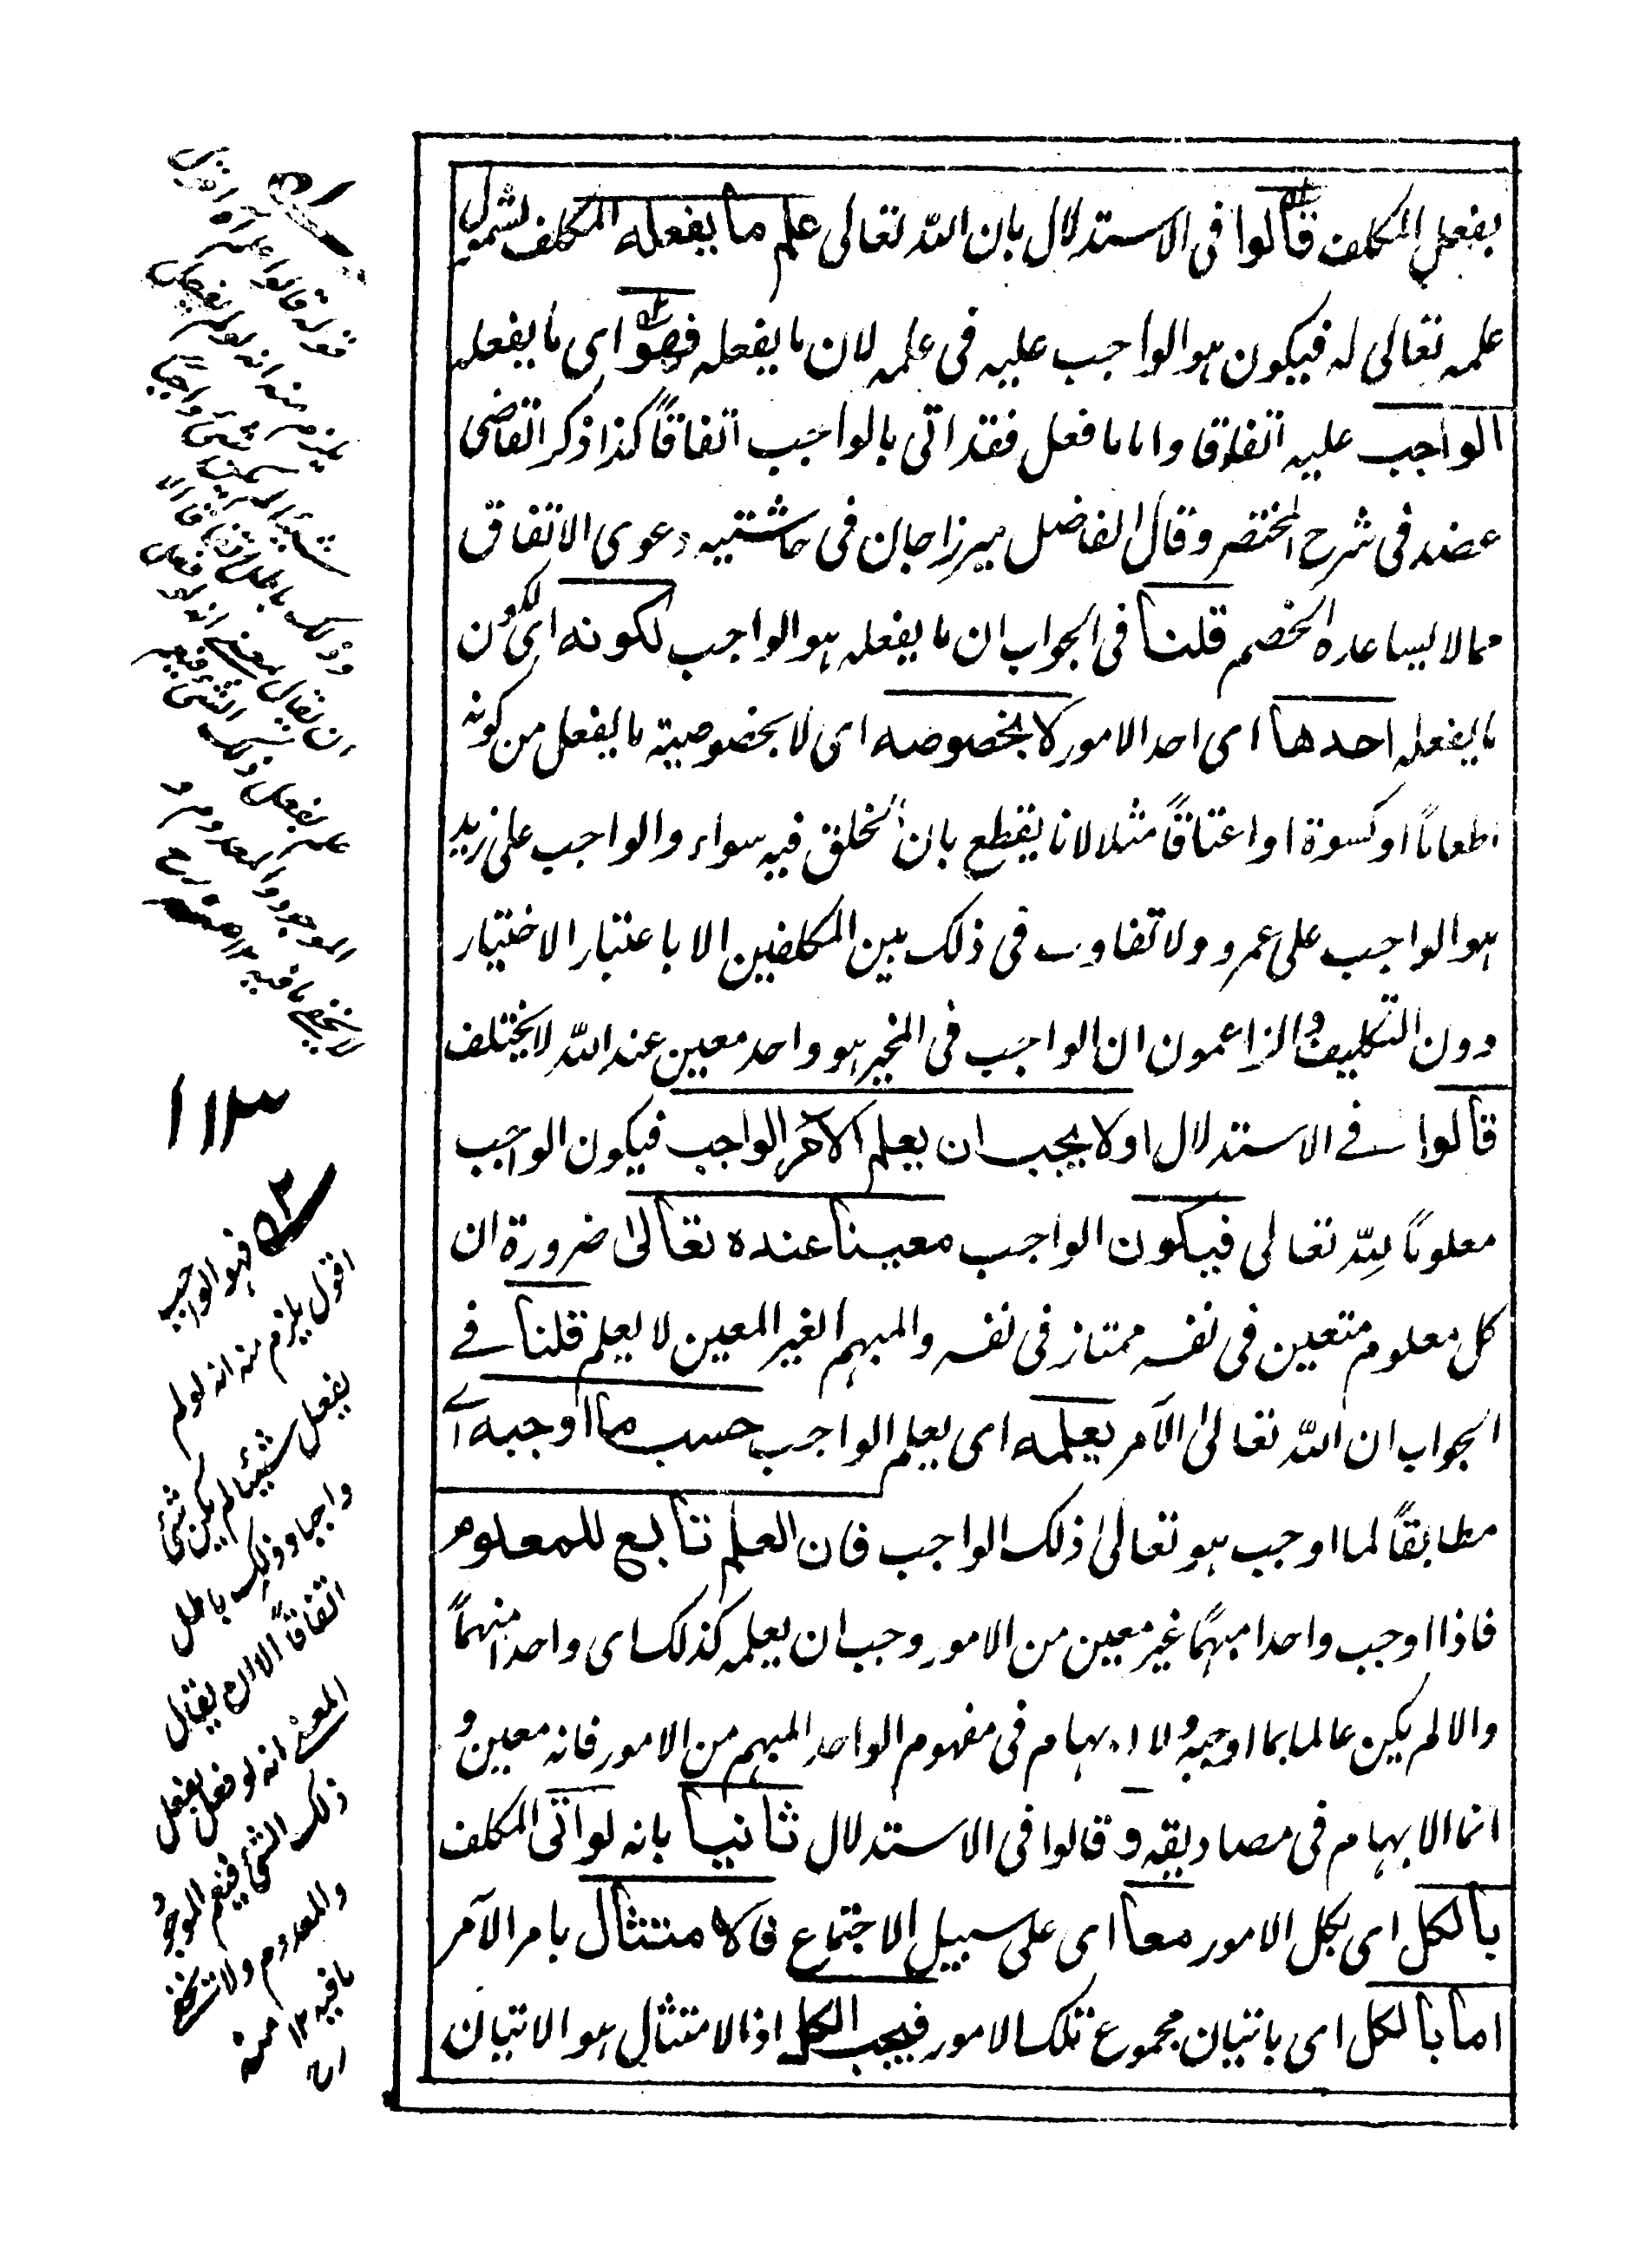 بفعل المكلف قالوا فى الاستدلال بان الله تعالى علم ما يفعله المكلف لشمول
علمه تعالى له فيكون هو الواجب عليه فى علمه لان ما يفعله فهو اى ما يفعله
الواجب عليه اتفاقا وانما ما فعل فقد اتى بالواجب اتفاقاً كذا ذكر القاضى
عضد فى شرح المختصر وقال الفاضل ميرزا جان فى حاشيته دعوى الاتفاق
مما لا يساعده الخصم قلنا فى الجواب ان ما يفعله هو الواجب لكونه اى لكون
ما يفعله احدها اى احد الامور لا بخصوصه اى لا بخصوصية ما يفعل من كونه
اطعاماً او كسوة او اعتاقاً مثلا لانا يقطع بان الخلق فيه سواء والواجب على زيد
هو الواجب على عمرو ولا تفاوت فى ذلك بين المكلفين الا باعتبار الاختيار
دون التكليف والزاعمون ان الواجب فى المخير هو واحد معين عند الله لا يختلف
قالوا فے الاستدلال اولا يجب ان يعلم الآمر الواجب فيكون الواجب
معلوماً لله تعالى فيكون الواجب معينا عنده تعالى ضرورة ان
كل معلوم متعين فى نفسه ممتاز فى نفسه والمبهم الغير المعين لا يعلم قلنا فے
الجواب ان الله تعالى الآمر يعلمه اى يعلم الواجب حسب ما اوجبه اے
مطابقاً لما اوجب هو تعالى ذلك الواجب فان العلم تابع للمعلوم
فاذا اوجب واحدا مبهمًا غير معين من الامور وجب ان يعلمه كذلك اى واحدا مبهماً
والا لم يكن عالما بما اوجبه ولا ابهام فى مفهوم الواحد المبهم من الامور فانه معين و
انما الابهام فى مصاديقه و قالوا فى الاستدلال ثانيا بانه لو اتى المكلف
بالكل اى بكل الامور معا اى على سبيل الاجتماع فالامتثال بامر الآمر
اما بالكل اى باتيان مجموع تلك الامور فيجب الكل اذ الامتثال هو الاتيان
قوله قالوا علم
يلزم منه انه لو لم يفعل
شيئا لم يكن شئ واجباً
وذلك باطل اتفاقا الا
ان يقال المعنى انه لو فعل
يفعل ذلك الشئ فيعم
الموجود والمعدوم و
لا يخفى ما فيه ١٢
١١٣
٢ فهو الواجب
اقول يلزم منه انه لو لم
يفعل شيئا لم يكن شئ
واجبا وذلك باطل
اتفاقاً الا ان يقال
المعنى انه لو فعل يفعل
ذلك الشئ فيعم الموجود
والمعدوم ولا يخفى
ما فيه ١٢ منه